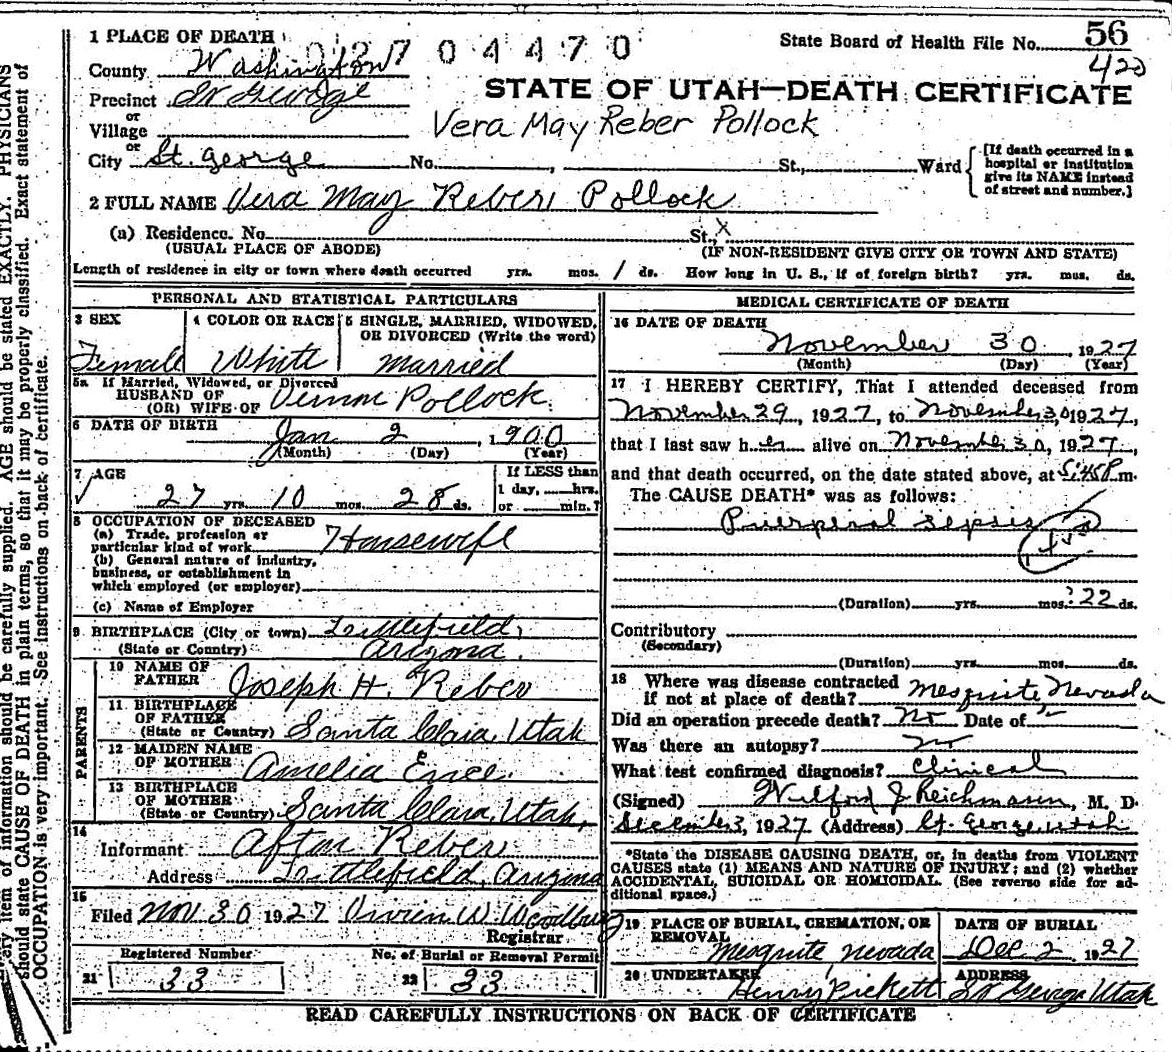 1 PLACE OF DEATH
0127 04470
State Board of Health File No. 56
420
County Washington
STATE OF UTAH—DEATH CERTIFICATE
Precinct St George
or
Village
Vera May Reber Pollock
or
City St. George No. St., Ward
[If death occurred in a hospital or institution give its NAME instead of street and number.]
2 FULL NAME Vera May Reber Pollock
(a) Residence. No. St., X
(USUAL PLACE OF ABODE) (IF NON-RESIDENT GIVE CITY OR TOWN AND STATE)
Length of residence in city or town where death occurred yrs. mos. 1 ds. How long in U. S., if of foreign birth? yrs. mos. ds.
PERSONAL AND STATISTICAL PARTICULARS
3 SEX 4 COLOR OR RACE 5 SINGLE, MARRIED, WIDOWED, OR DIVORCED (Write the word)
Female White Married
5a If Married, Widowed, or Divorced
HUSBAND OF
(OR) WIFE OF Vernon Pollock
6 DATE OF BIRTH Jan 2, 1900
(Month) (Day) (Year)
7 AGE If LESS than
1 day, hrs.
27 yrs. 10 mos. 28 ds. or min.?
8 OCCUPATION OF DECEASED
(a) Trade, profession or
particular kind of work Housewife
(b) General nature of industry,
business, or establishment in
which employed (or employer)
(c) Name of Employer
9 BIRTHPLACE (City or town) Littlefield,
(State or Country) Arizona.
PARENTS
10 NAME OF
FATHER Joseph H. Reber
11 BIRTHPLACE
OF FATHER
(State or Country) Santa Clara, Utah
12 MAIDEN NAME
OF MOTHER Amelia Ence.
13 BIRTHPLACE
OF MOTHER
(State or Country) Santa Clara, Utah,
14
Informant Afton Reber
Address Littlefield, Arizona
15
Filed Nov 30 1927 Vivien W Woodbury
Registrar
Registered Number No. of Burial or Removal Permit
21 33 22 33
MEDICAL CERTIFICATE OF DEATH
16 DATE OF DEATH
November 30, 1927
(Month) (Day) (Year)
17 I HEREBY CERTIFY, That I attended deceased from
November 29, 1927, to November 30, 1927,
that I last saw her alive on November 30, 1927,
and that death occurred, on the date stated above, at 5:45P m.
The CAUSE DEATH* was as follows:
Puerperal sepsis
(Duration) yrs. mos. ?22 ds.
Contributory
(Secondary)
(Duration) yrs. mos. ds.
18 Where was disease contracted
if not at place of death? Mesquite, Nevada
Did an operation precede death? No Date of
Was there an autopsy? no
What test confirmed diagnosis? Clinical
(Signed) Wilford J Reichmann, M. D.
December 3, 1927 (Address) St. George, Utah
*State the DISEASE CAUSING DEATH, or, in deaths from VIOLENT
CAUSES state (1) MEANS AND NATURE OF INJURY; and (2) whether
ACCIDENTAL, SUICIDAL OR HOMICIDAL. (See reverse side for ad-
ditional space.)
19 PLACE OF BURIAL, CREMATION, OR REMOVAL DATE OF BURIAL
Mesquite Nevada Dec 2 1927
20 UNDERTAKER ADDRESS
Henry Pickett St George Utah
READ CAREFULLY INSTRUCTIONS ON BACK OF CERTIFICATE
ery item of information should be carefully supplied. AGE should be stated EXACTLY. PHYSICIANS
should state CAUSE OF DEATH in plain terms, so that it may be properly classified. Exact statement of
OCCUPATION is very important. See instructions on back of certificate.